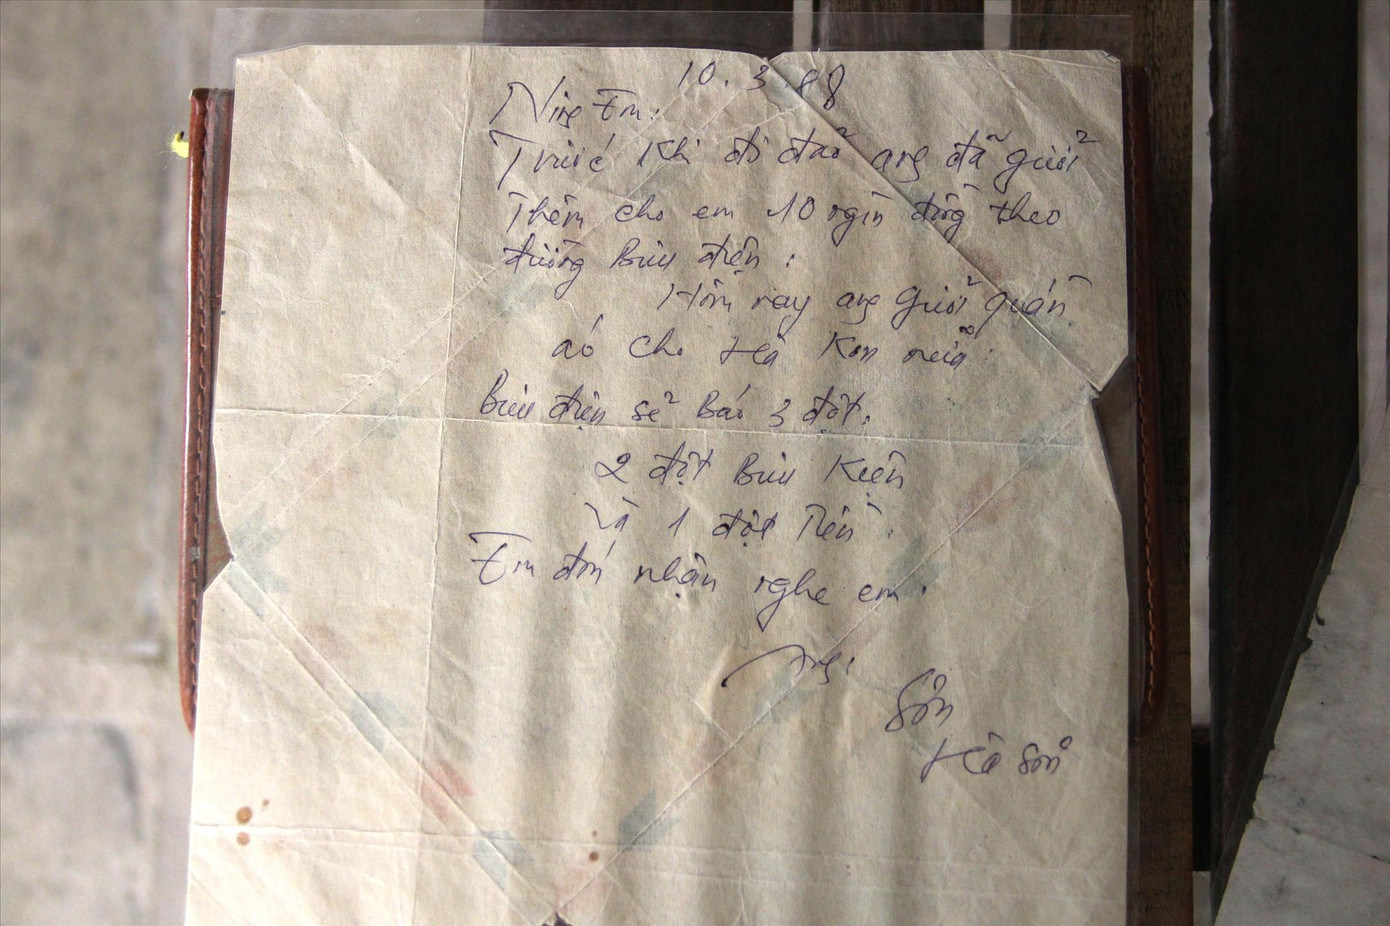 10.3.88
Ninh Em:
Trước khi đi đảo anh đã gưởi
Thêm cho em 10 ngìn đồng theo
đường Bưu điện:
Hôm nay anh gưởi quần
áo cho Hà Kon nữa:
Bưu điện sẽ Báo 3 đợt:
2 đợt Bưu Kiện
và 1 đợt Tiền:
Em đón nhận nghe em.
Anh:
Sơn
Hà Sơn